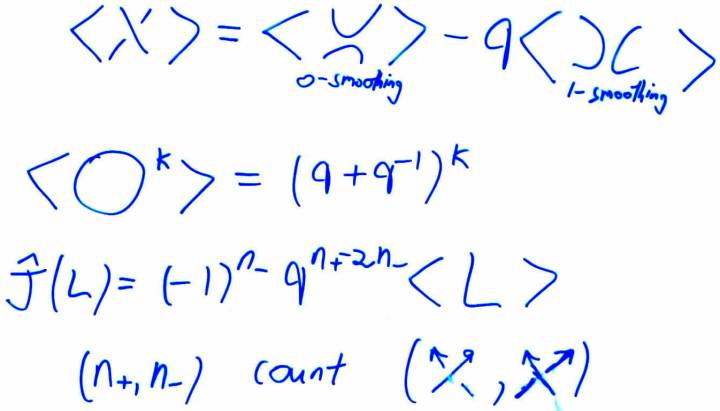 <X> = <≍> - q<)(>
0-smoothing 1-smoothing
<O^k> = (q+q^-1)^k
Ĵ(L) = (-1)^n- q^n+-2n- <L>
(n+, n-) count (X, X)